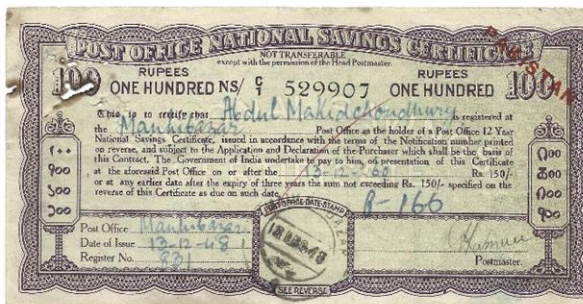 POST OFFICE NATIONAL SAVINGS CERTIFICATE
PAKISTAN
NOT TRANSFERABLE
except with the permission of the Head Postmaster.
100 RUPEES RUPEES 100
ONE HUNDRED NS/ C/1 529907 ONE HUNDRED
This is to certify that Abdul Mahid Choudhury is registered at
the Post Office as the holder of a Post Office 12 Year
National Savings Certificate, issued in accordance with the terms of the Notification number printed
on reverse, and subject to the Application and Declaration of the Purchaser which shall be the basis of
this Contract. The Government of India undertake to pay to him, on presentation of this Certificate
at the aforesaid Post Office on or after the 13-12-60 Rs. 150/-
or at any earlier date after the expiry of three years the sum not exceeding Rs. 150/- specified on the
reverse of this Certificate as due on such date.
R-166
१००
১০০
Post Office
Date of Issue 13-12-48
Register No. 831
POST OFFICE DATE-STAMP
SEE REVERSE
Postmaster.